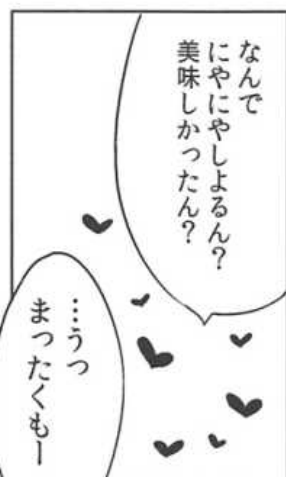 なんで
にやにやしよるん？
美味しかったん？
…うっ
まったくもー